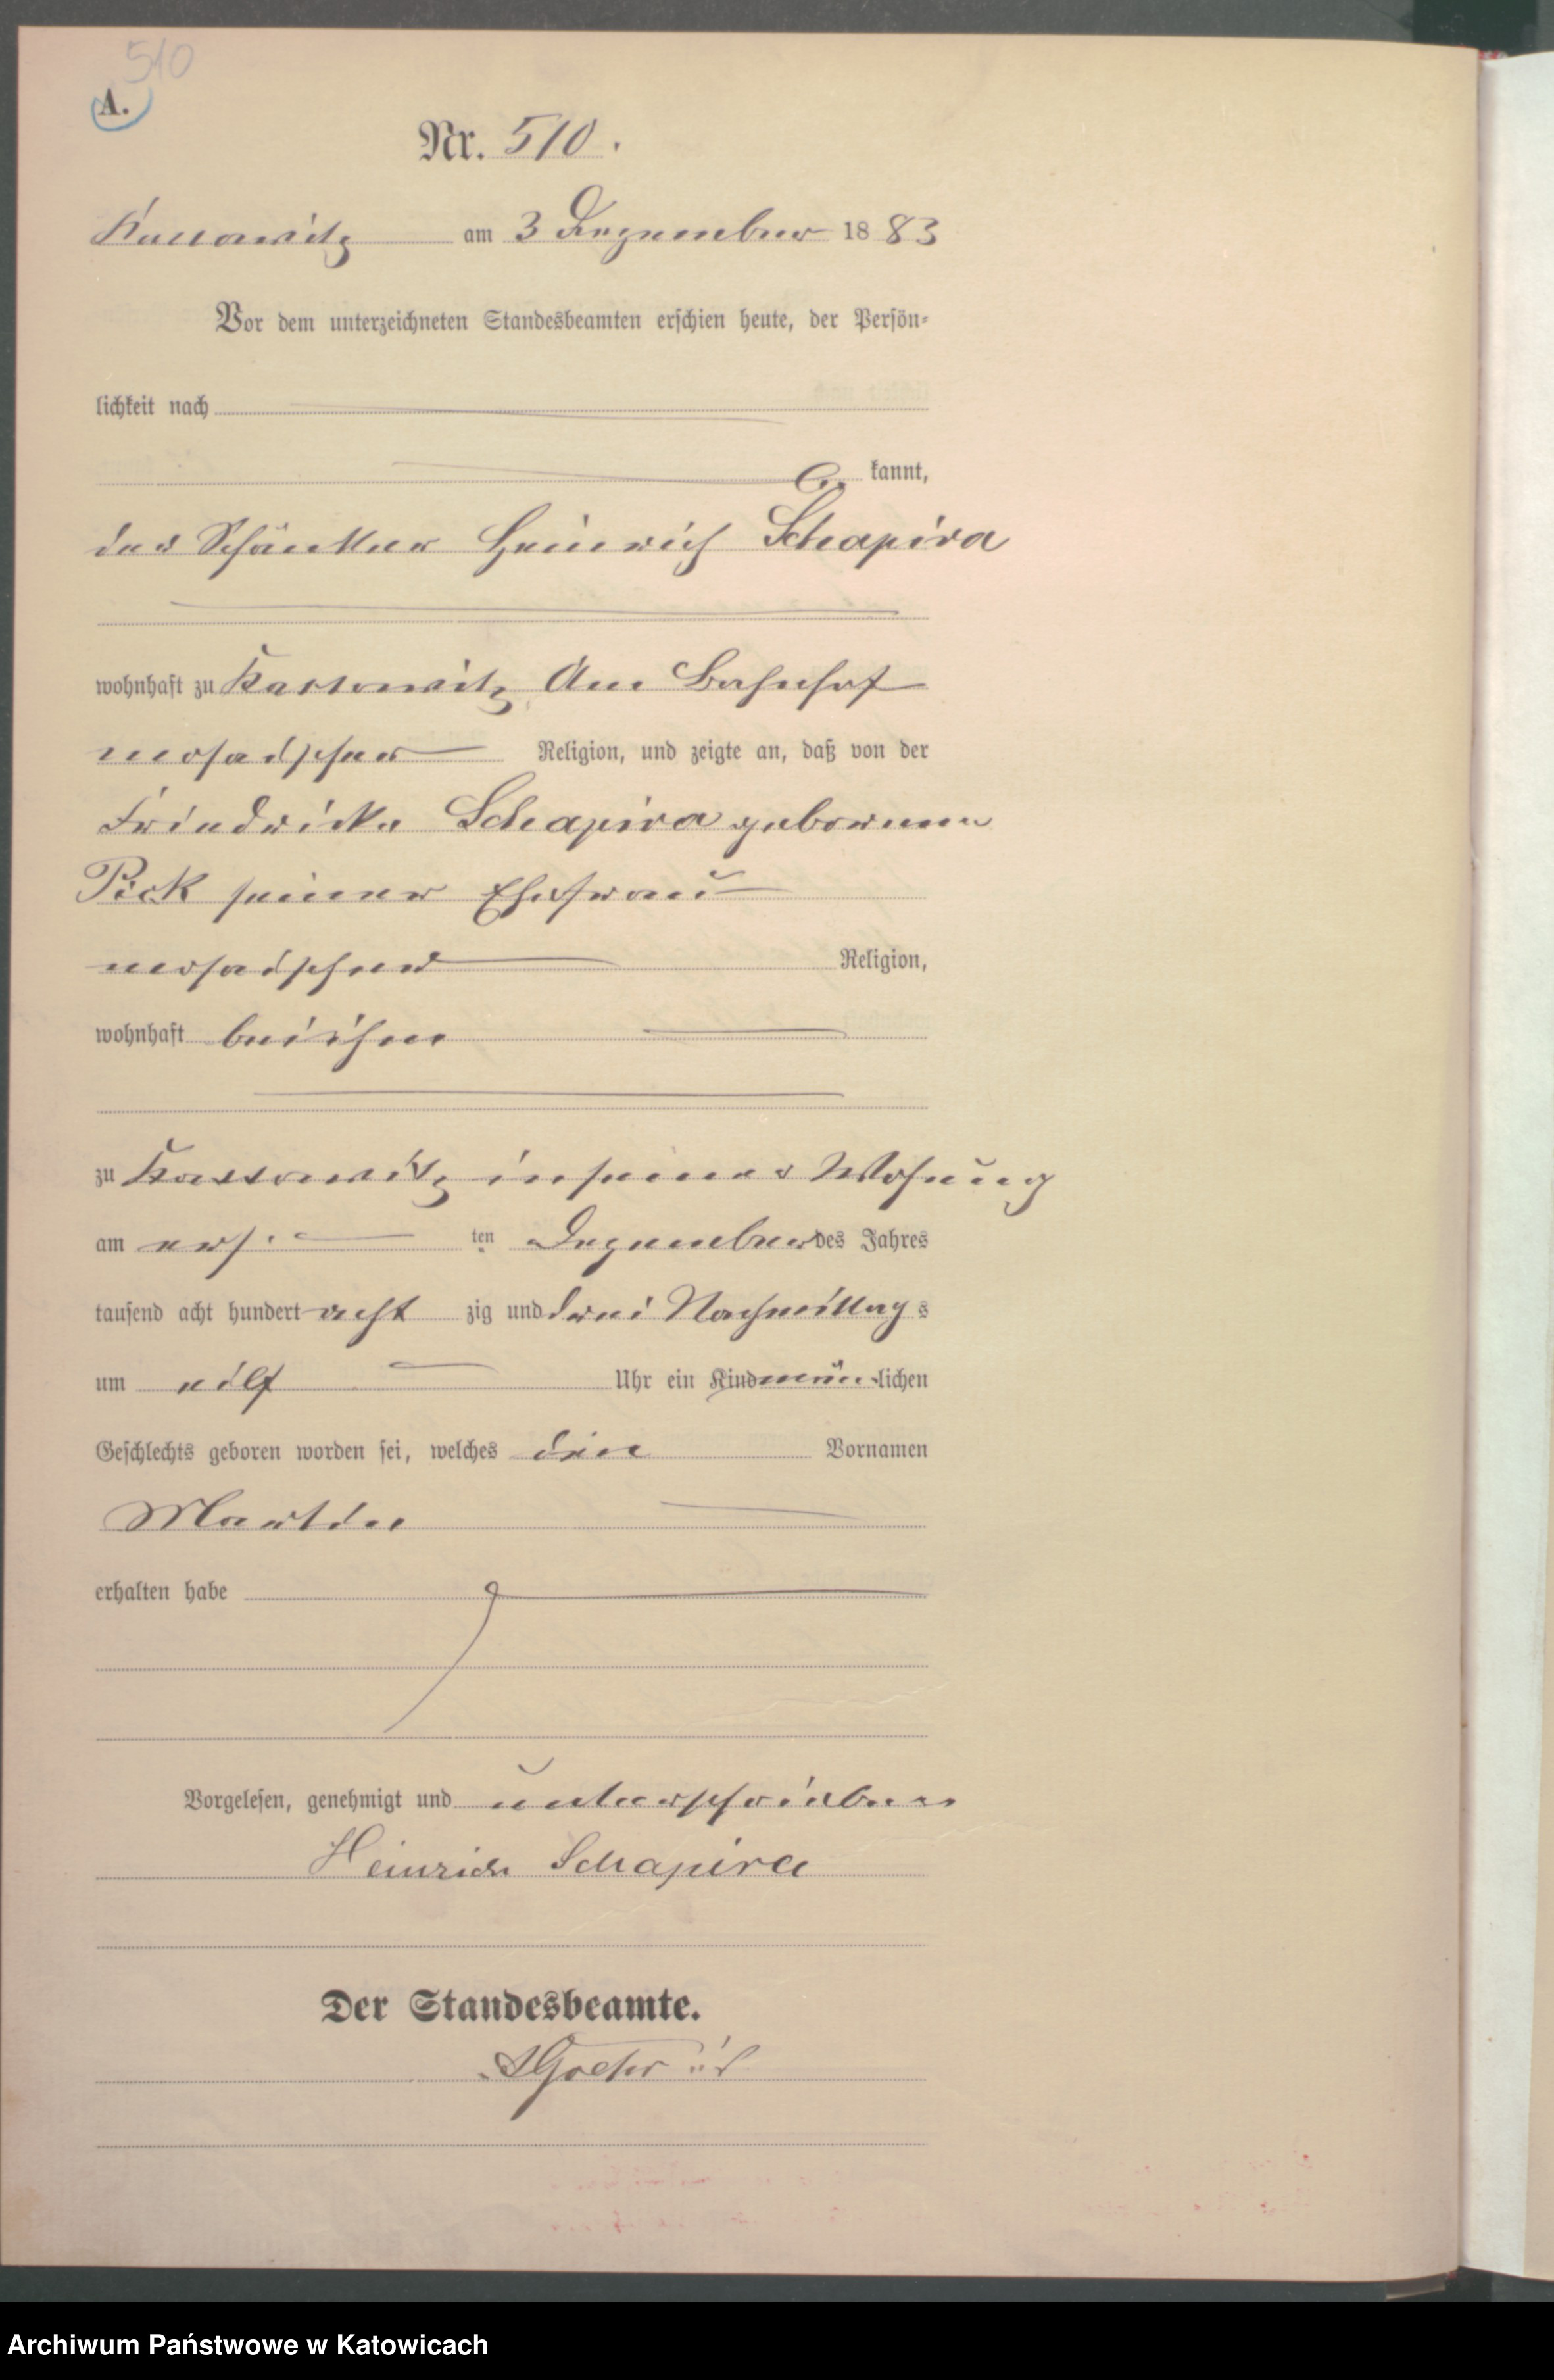 510
A.
Nr. 510.
Kattowitz am 3 Dezember 1883
Vor dem unterzeichneten Standesbeamten erschien heute, der Persön-
lichkeit nach
be kannt,
der Schänker Heinrich Schapira
wohnhaft zu Kattowitz, Am Bahnhof
mosaischer Religion, und zeigte an, daß von der
Friedricke Schapira geborenen
Pick seiner Ehefrau
mosaischer Religion,
wohnhaft bei ihm
zu Kattowitz in seiner Wohnung
am ers ten Dezember des Jahres
tausend acht hundert acht zig und drei Nachmittags
um elf Uhr ein Kind männlichen
Geschlechts geboren worden sei, welches den Vornamen
Martin
erhalten habe
Vorgelesen, genehmigt und unterschrieben
Heinrich Schapira
Der Standesbeamte.
Archiwum Państwowe w Katowicach